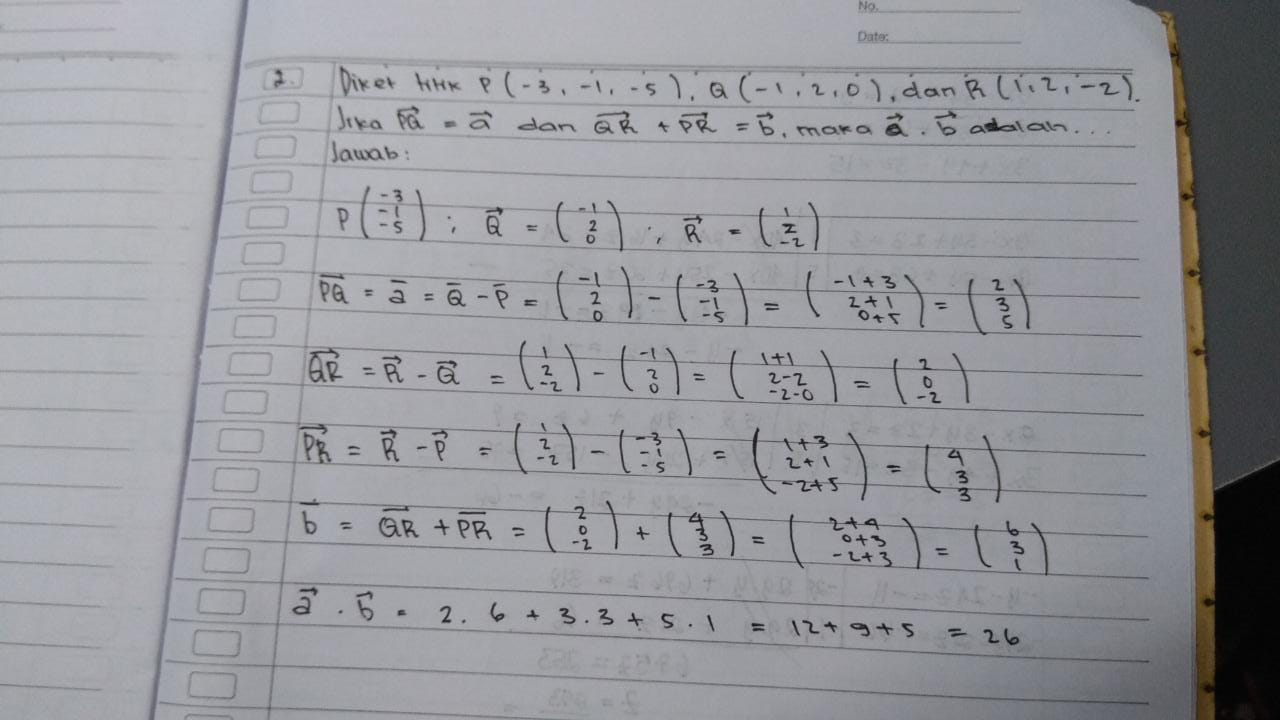 No.
Date:
2. Diket titik P (-3, -1, -5), Q (-1, 2, 0), dan R (1, 2, -2).
Jika PQ→ = a→ dan QR→ + PR→ = b→, maka a→ . b→ adalah...
Jawab:
P (-3 -1 -5) ; Q→ = (-1 2 0) ; R→ = (1 2 -2)
PQ→ = a̅ = Q̅ - P̅ = (-1 2 0) - (-3 -1 -5) = (-1+3 2+1 0+5) = (2 3 5)
QR→ = R→ - Q→ = (1 2 -2) - (-1 2 0) = (1+1 2-2 -2-0) = (2 0 -2)
PR→ = R→ - P→ = (1 2 -2) - (-3 -1 -5) = (1+3 2+1 -2+5) = (4 3 3)
b→ = QR→ + PR→ = (2 0 -2) + (4 3 3) = (2+4 0+3 -2+3) = (6 3 1)
a→ . b→ = 2.6 + 3.3 + 5.1 = 12+9+5 = 26